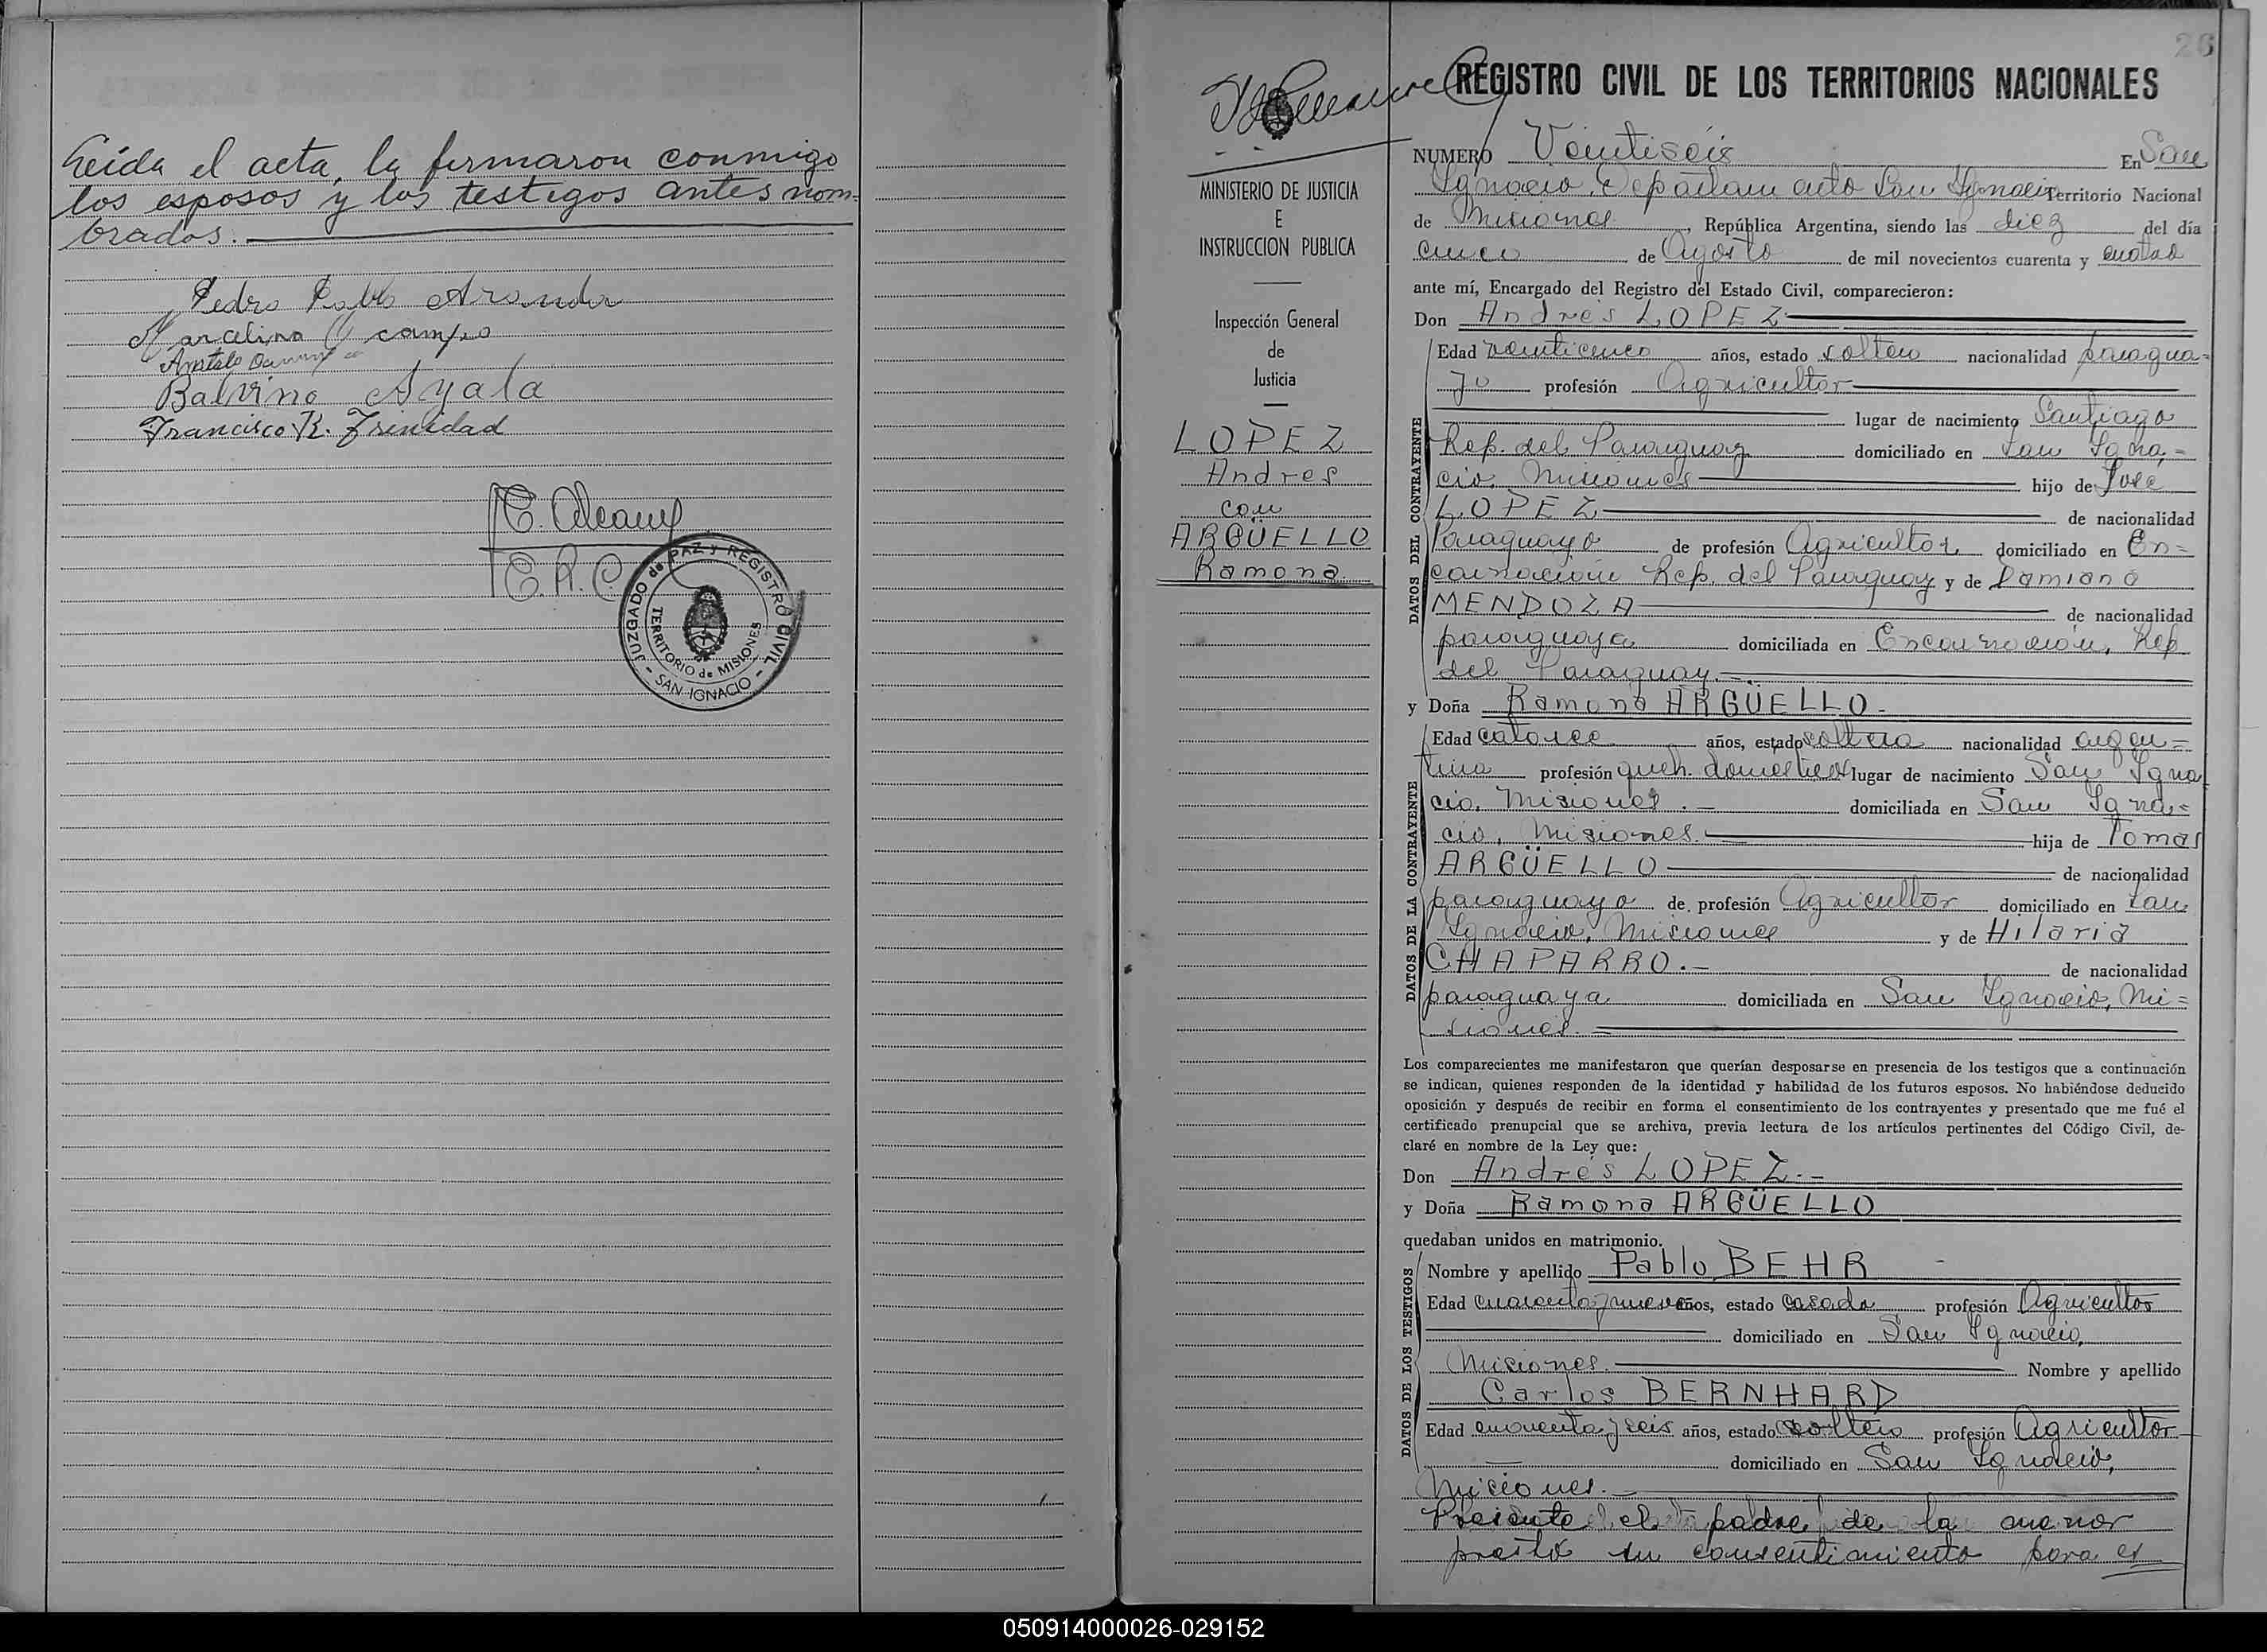 Leída el acta, la firmaron conmigo
los esposos y los testigos antes nom-
brados.
Pedro Pablo Aranda
Marcelina Ocampo
Balvino Ayala
Francisco R. Trinidad
E.R.C.
JUZGADO de PAZ y REGISTRO CIVIL
- SAN IGNACIO -
TERRITORIO de MISIONES
26
REGISTRO CIVIL DE LOS TERRITORIOS NACIONALES
MINISTERIO DE JUSTICIA
E
INSTRUCCION PUBLICA
Inspección General
de
Justicia
LOPEZ
Andres
con
ARGÜELLO
Ramona
NUMERO Veintiseis En San
Ignacio, Departamento San Ignacio Territorio Nacional
de Misiones, República Argentina, siendo las diez del día
cinco de Agosto de mil novecientos cuarenta y cuatro
ante mí, Encargado del Registro del Estado Civil, comparecieron:
Don Andrés LOPEZ
DATOS DEL CONTRAYENTE
Edad veinticinco años, estado soltero nacionalidad paragua=
yo profesión Agricultor
lugar de nacimiento Santiago
Rep. del Paraguay domiciliado en San Igna=
cio, Misiones hijo de José
LOPEZ de nacionalidad
Paraguayo de profesión Agricultor domiciliado en En=
carnación Rep. del Paraguay y de Damiana
MENDOZA de nacionalidad
paraguaya domiciliada en Encarnación, Rep
del Paraguay.
y Doña Ramona ARGÜELLO.-
DATOS DE LA CONTRAYENTE
Edad catorce años, estado soltera nacionalidad argen=
tina profesión queh. domesticos lugar de nacimiento San Igna
cio, Misiones.- domiciliada en San Igna=
cio, Misiones. hija de Tomas
ARGÜELLO de nacionalidad
paraguayo de profesión Agricultor domiciliado en San
Ignacio, Misiones y de Hilaria
CHAPARRO.- de nacionalidad
paraguaya domiciliada en San Ignacio, Mi=
siones.
Los comparecientes me manifestaron que querían desposarse en presencia de los testigos que a continuación
se indican, quienes responden de la identidad y habilidad de los futuros esposos. No habiéndose deducido
oposición y después de recibir en forma el consentimiento de los contrayentes y presentado que me fué el
certificado prenupcial que se archiva, previa lectura de los artículos pertinentes del Código Civil, de-
claré en nombre de la Ley que:
Don Andrés LOPEZ.-
y Doña Ramona ARGÜELLO
quedaban unidos en matrimonio.
DATOS DE LOS TESTIGOS
Nombre y apellido Pablo BEHR
Edad cuarenta y nueve años, estado casado profesión Agricultor
domiciliado en San Ignacio,
Misiones. Nombre y apellido
Carlos BERNHARD
Edad y seis años, estado soltero profesión Agricultor
domiciliado en San Ignacio,
Misiones.-
Presente el padre de la menor
prestó su consentimiento para el
050914000026-029152